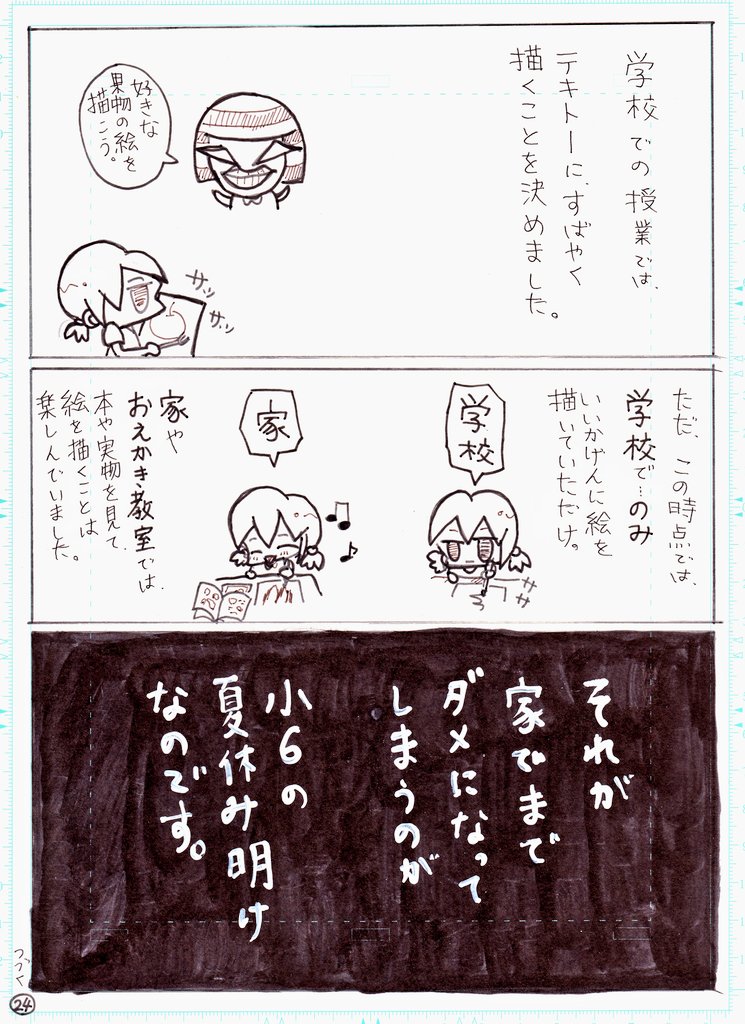 学校での授業では、
テキトーに、すばやく
描くことを決めました。
好きな
果物の絵を
描こう。
サッ
サッ
ただ、この時点では、
学校で…のみ
いいかげんに絵を
描いていただけ。
学校
ササ
家
家や
おえかき教室では、
本や実物を見て、
絵を描くことは
楽しんでいました。
それが
家でまで
ダメになって
しまうのが
小6の
夏休み明け
なのです。
つづく
24